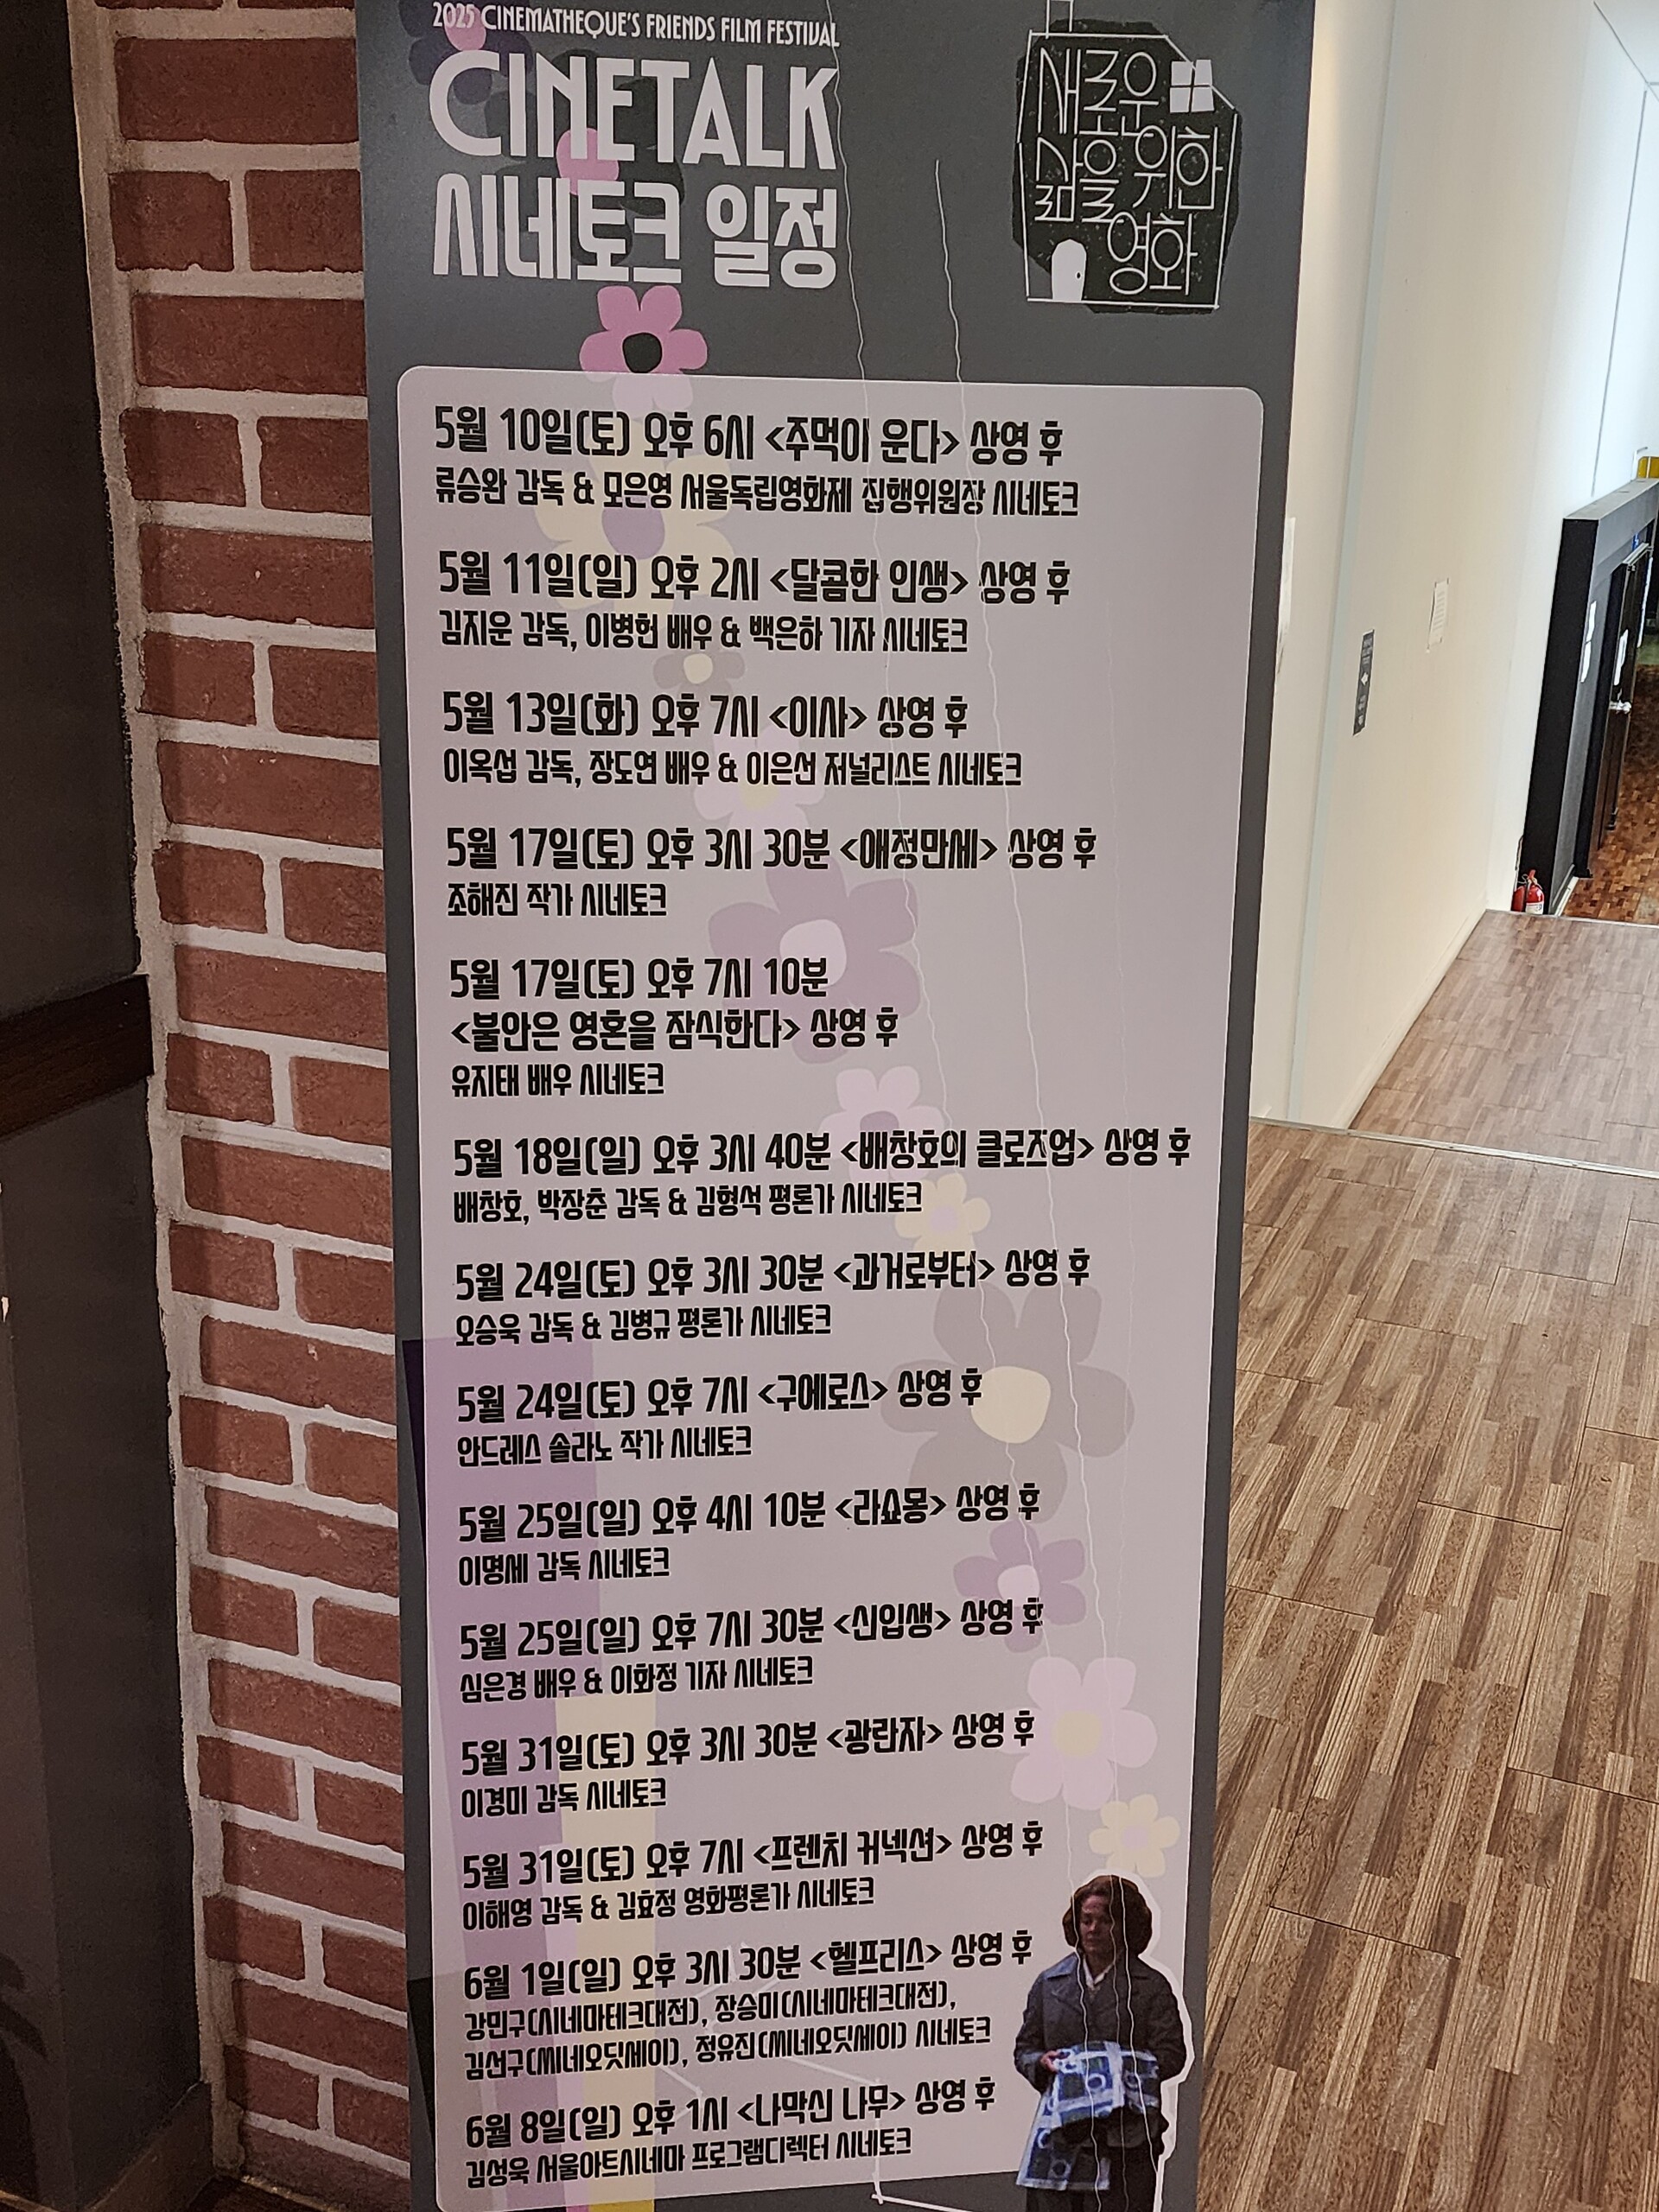 2025 CINEMATHEQUE'S FRIENDS FILM FESTIVAL
CINETALK
시네토크 일정
새로운
삶을 위한
영화
5월 10일(토) 오후 6시 <주먹이 운다> 상영 후
류승완 감독 & 모은영 서울독립영화제 집행위원장 시네토크
5월 11일(일) 오후 2시 <달콤한 인생> 상영 후
김지운 감독, 이병헌 배우 & 백은하 기자 시네토크
5월 13일(화) 오후 7시 <이사> 상영 후
이옥섭 감독, 장도연 배우 & 이은선 저널리스트 시네토크
5월 17일(토) 오후 3시 30분 <애정만세> 상영 후
조해진 작가 시네토크
5월 17일(토) 오후 7시 10분
<불안은 영혼을 잠식한다> 상영 후
유지태 배우 시네토크
5월 18일(일) 오후 3시 40분 <배창호의 클로즈업> 상영 후
배창호, 박장춘 감독 & 김형석 평론가 시네토크
5월 24일(토) 오후 3시 30분 <과거로부터> 상영 후
오승욱 감독 & 김병규 평론가 시네토크
5월 24일(토) 오후 7시 <구에로스> 상영 후
안드레스 솔라노 작가 시네토크
5월 25일(일) 오후 4시 10분 <라쇼몽> 상영 후
이명세 감독 시네토크
5월 25일(일) 오후 7시 30분 <신입생> 상영 후
심은경 배우 & 이화정 기자 시네토크
5월 31일(토) 오후 3시 30분 <광란자> 상영 후
이경미 감독 시네토크
5월 31일(토) 오후 7시 <프렌치 커넥션> 상영 후
이해영 감독 & 김효정 영화평론가 시네토크
6월 1일(일) 오후 3시 30분 <헬프리스> 상영 후
강민구(시네마테크대전), 장승미(시네마테크대전),
김선구(씨네오딧세이), 정유진(씨네오딧세이) 시네토크
6월 8일(일) 오후 1시 <나막신 나무> 상영 후
김성욱 서울아트시네마 프로그램디렉터 시네토크